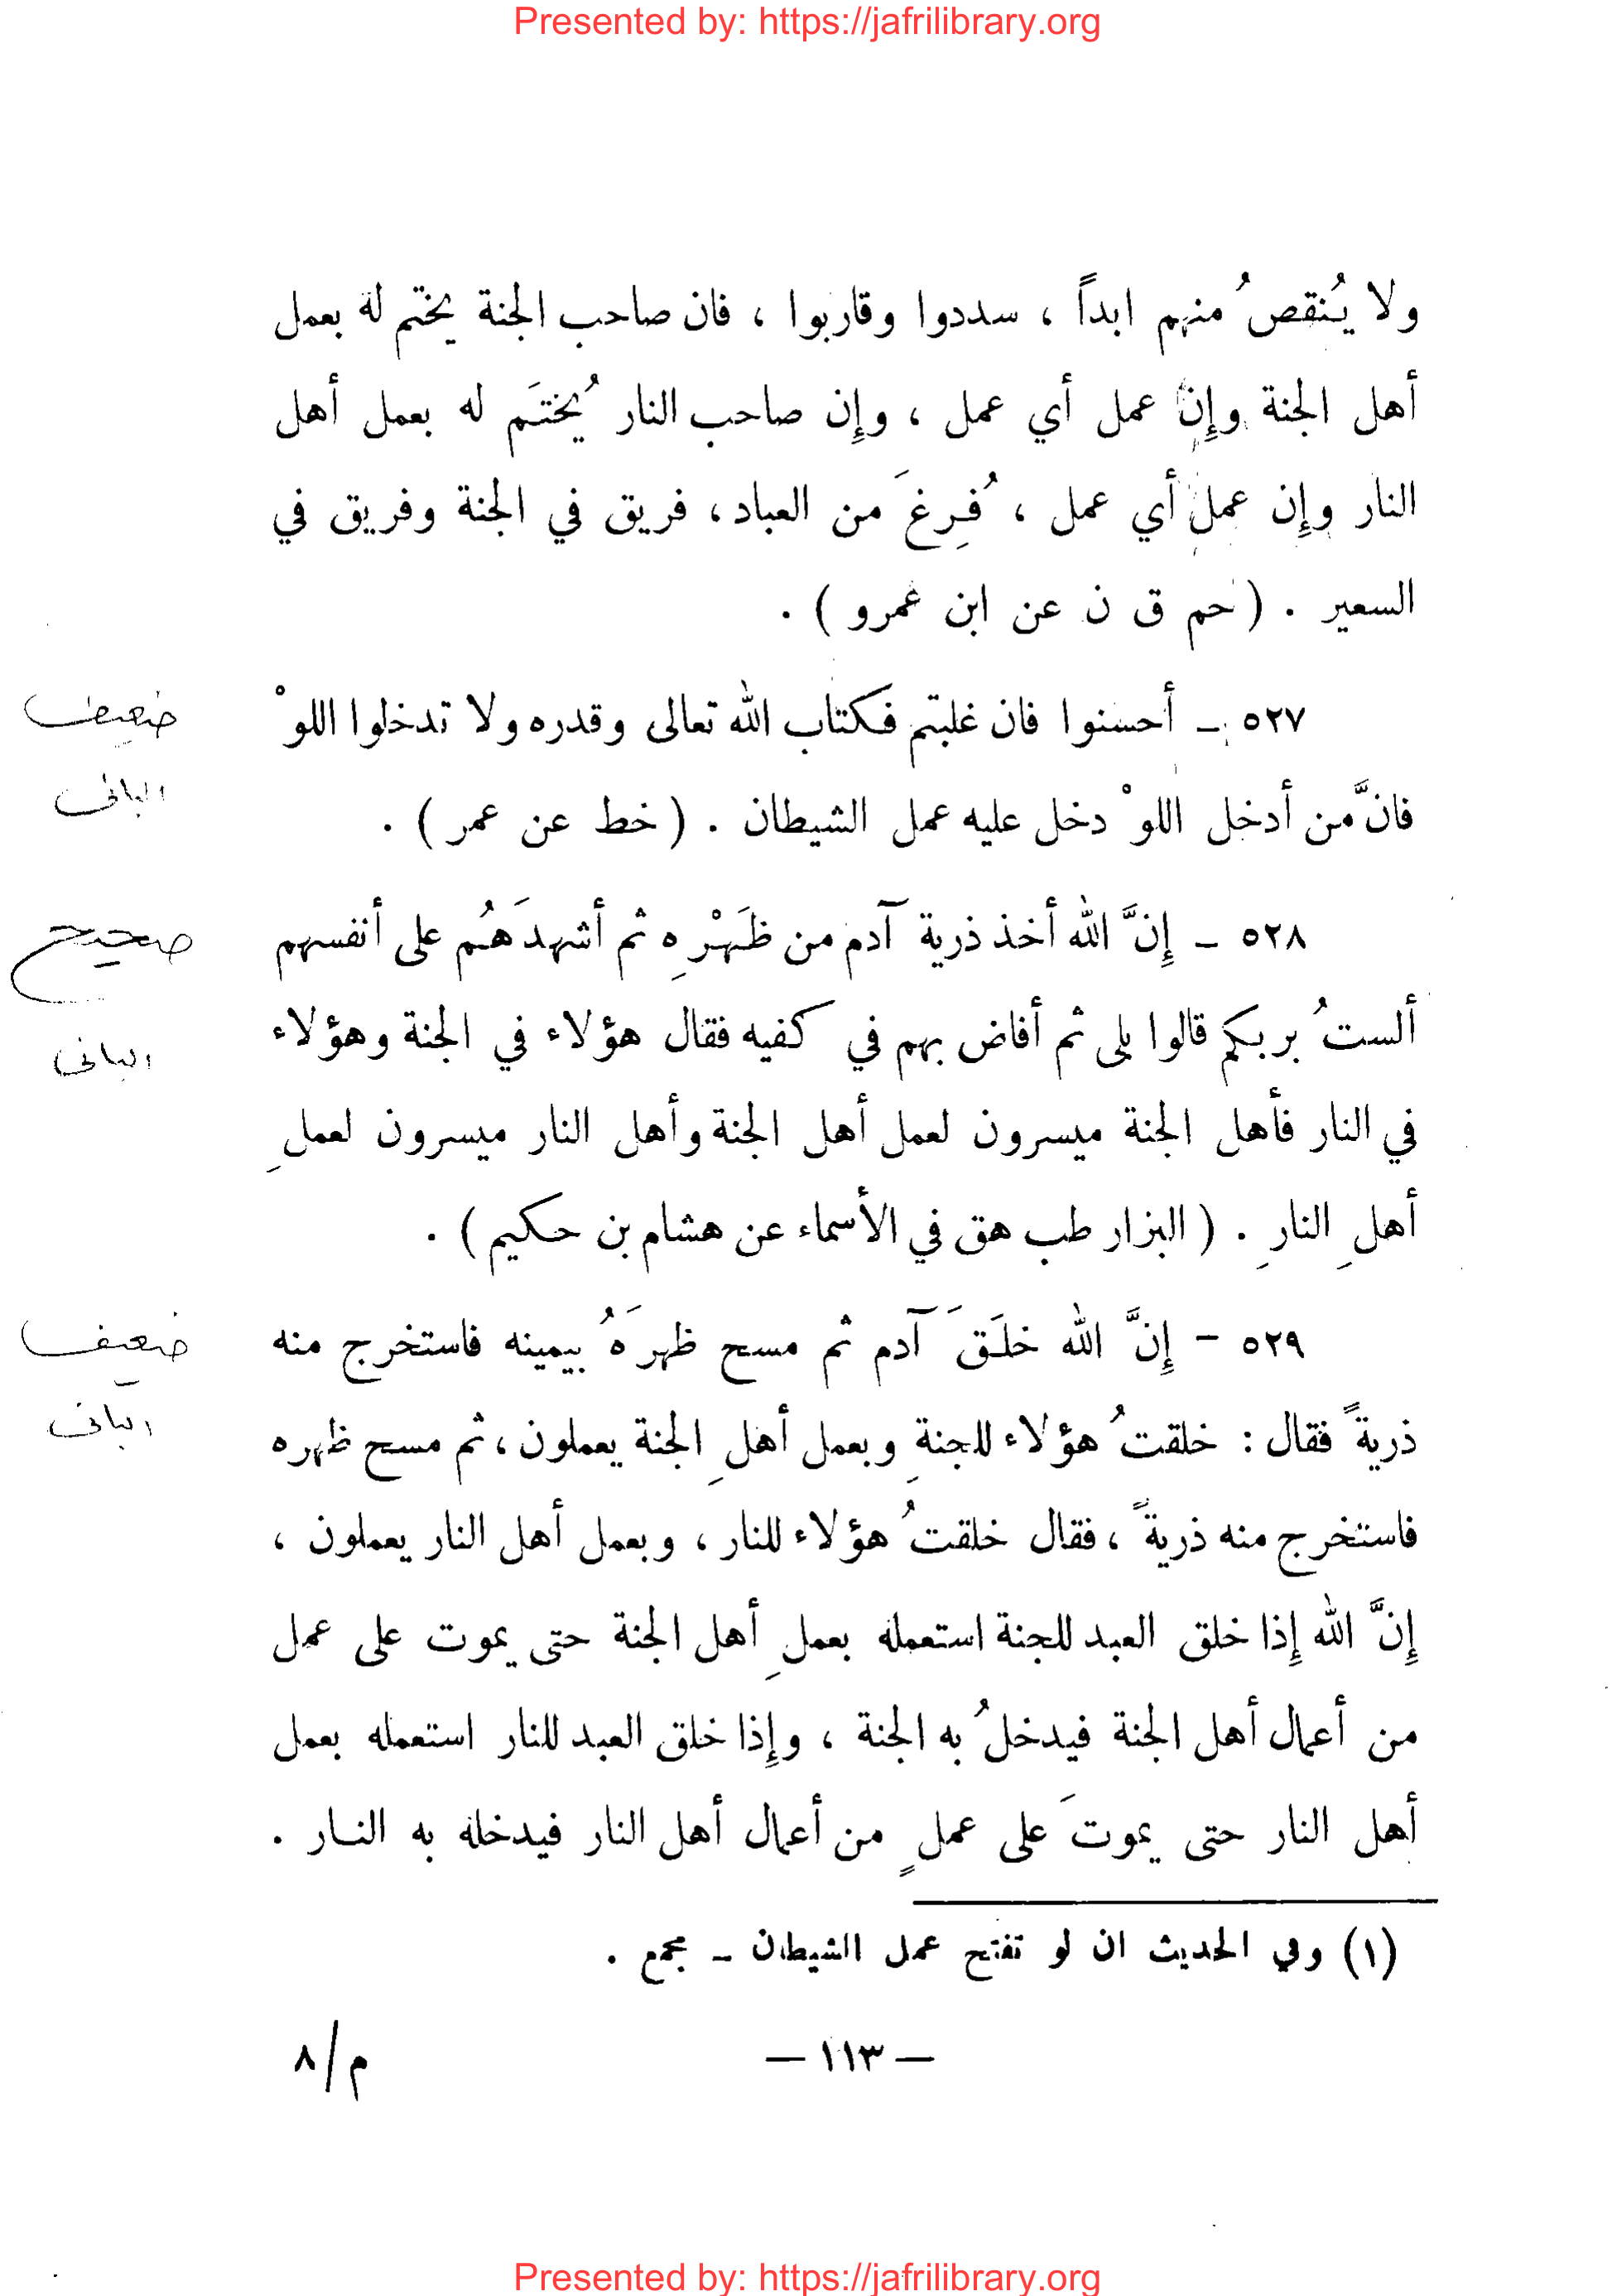 Presented by: https://jafrilibrary.org
ولا يُنقصُ منهم ابداً ، سددوا وقاربوا ، فان صاحب الجنة يختم له بعمل
أهل الجنة وإن عمل أي عمل ، وإن صاحب النار يُختَم له بعمل أهل
النار وإن عمل أي عمل ، فُرِغَ من العباد ، فريق في الجنة وفريق في
السعير . ( حم ق ن عن ابن عمرو ) .
٥٢٧ ـ أحسنوا فان غلبتم فكتاب الله تعالى وقدره ولا تدخلوا اللوْ
ضعيف
البانى
فانَّ من أدخل اللوْ دخل عليه عمل الشيطان . ( خط عن عمر ) .
٥٢٨ ـ إِنَّ الله أخذ ذرية آدم من ظَهْرِه ثم أشهدَهُم على أنفسهم
صحيح
البانى
ألستُ بربكم قالوا بلى ثم أفاض بهم في كفيه فقال هؤلاء في الجنة وهؤلاء
في النار فأهل الجنة ميسرون لعمل أهل الجنة وأهل النار ميسرون لعملِ
أهلِ النارِ . ( البزار طب هق في الأسماء عن هشام بن حكيم ) .
٥٢٩ - إِنَّ الله خلَقَ آدم ثم مسح ظهرَهُ بيمينه فاستخرج منه
ضعيف
البانى
ذريةً فقال : خلقتُ هؤلاء للجنةِ وبعمل أهلِ الجنة يعملون ، ثم مسح ظهره
فاستخرج منه ذريةً ، فقال خلقتُ هؤلاء للنار ، وبعمل أهل النار يعملون ،
إِنَّ الله إِذا خلق العبد للجنة استعمله بعملِ أهل الجنة حتى يموت على عمل
من أعمال أهل الجنة فيدخلُ به الجنة ، وإِذا خلق العبد للنار استعمله بعمل
أهل النار حتى يموتَ على عملٍ من أعمال أهل النار فيدخله به النار .
(١) وفي الحديث ان لو تفتح عمل الشيطان ـ مجمع .
— ١١٣ —
م/٨
Presented by: https://jafrilibrary.org